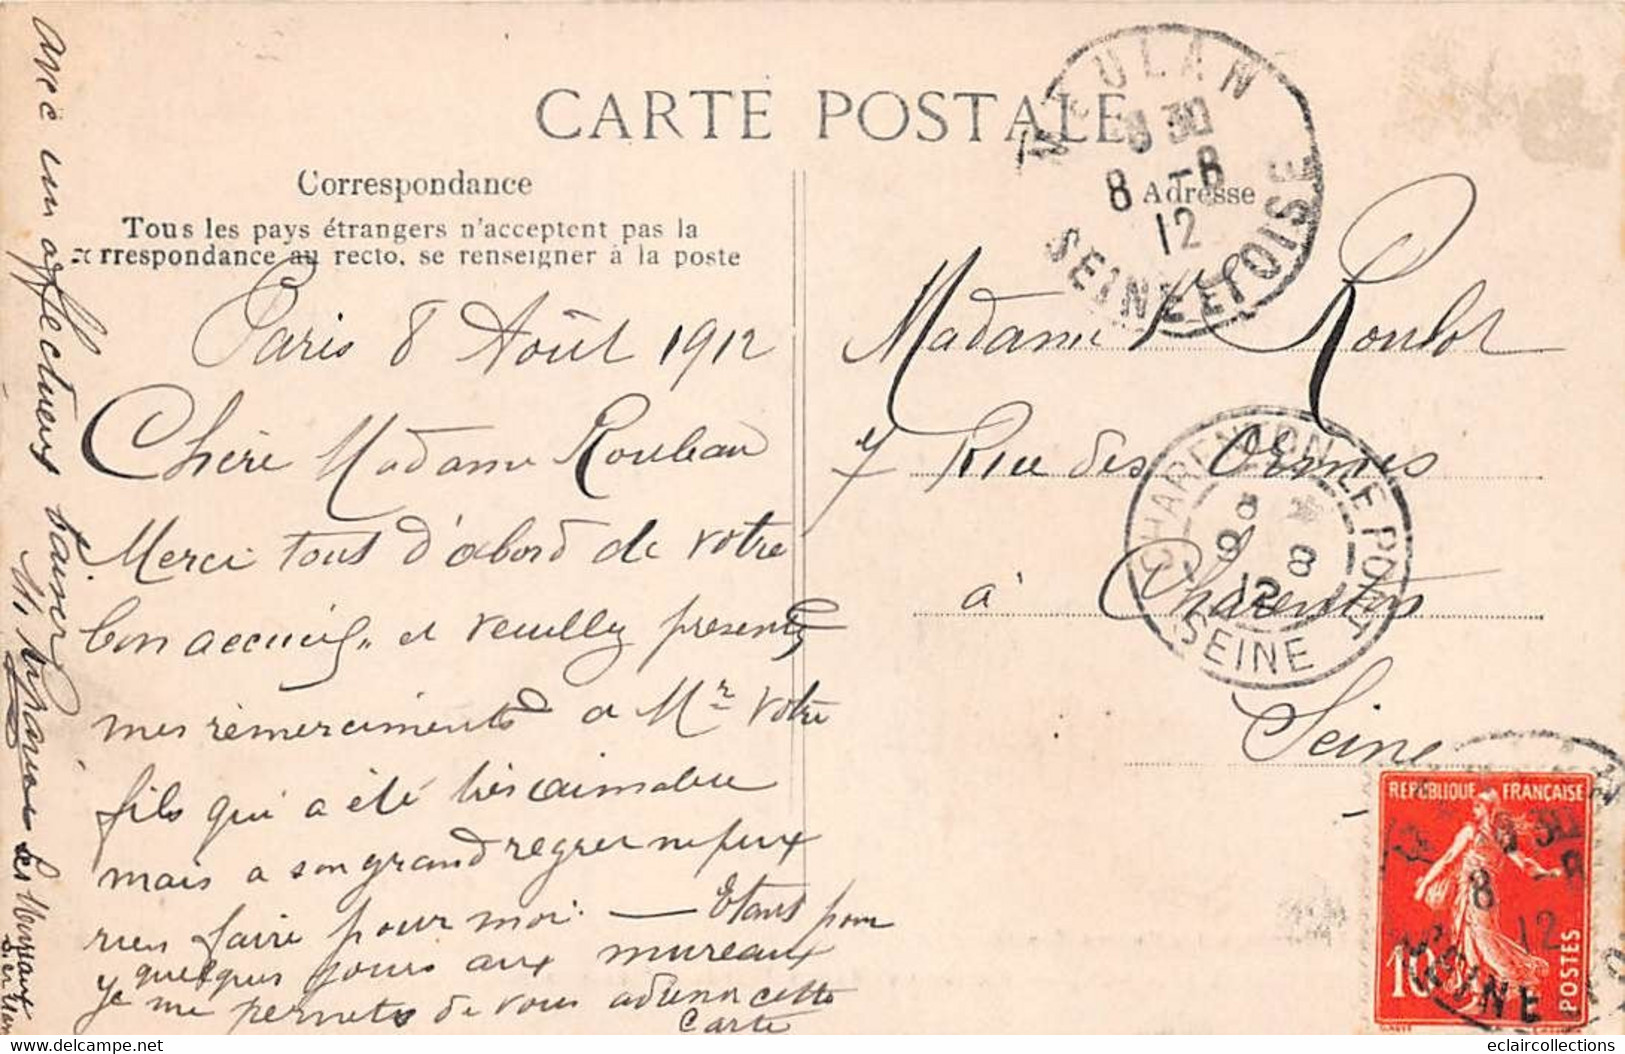 CARTE POSTALE
Correspondance
Tous les pays étrangers n'acceptent pas la
rrespondance au recto, se renseigner à la poste
Paris 8 Août 1912
Chère Madame
Merci tout d'abord de votre
bon accueil, et veuillez présenter
mes remerciments a Mr votre
fils qui a été très aimable
mais a son grand regret ne peux
rien faire pour moi. — Etant pour
quelques jours aux mureaux
je me permets de vous adresser cette
carte
avec un affectueux baiser
Adresse
Madame Vve Roulot
7 Rue des Ormes
à Charenton
Seine
MEULAN
8 30
8 -8
12
SEINE ET OISE
CHARENTON LE PONT
8 *
9 8
12
SEINE
REPUBLIQUE FRANÇAISE
8 30
8 -8
12
10c
POSTES
SEINE
eclaircollections